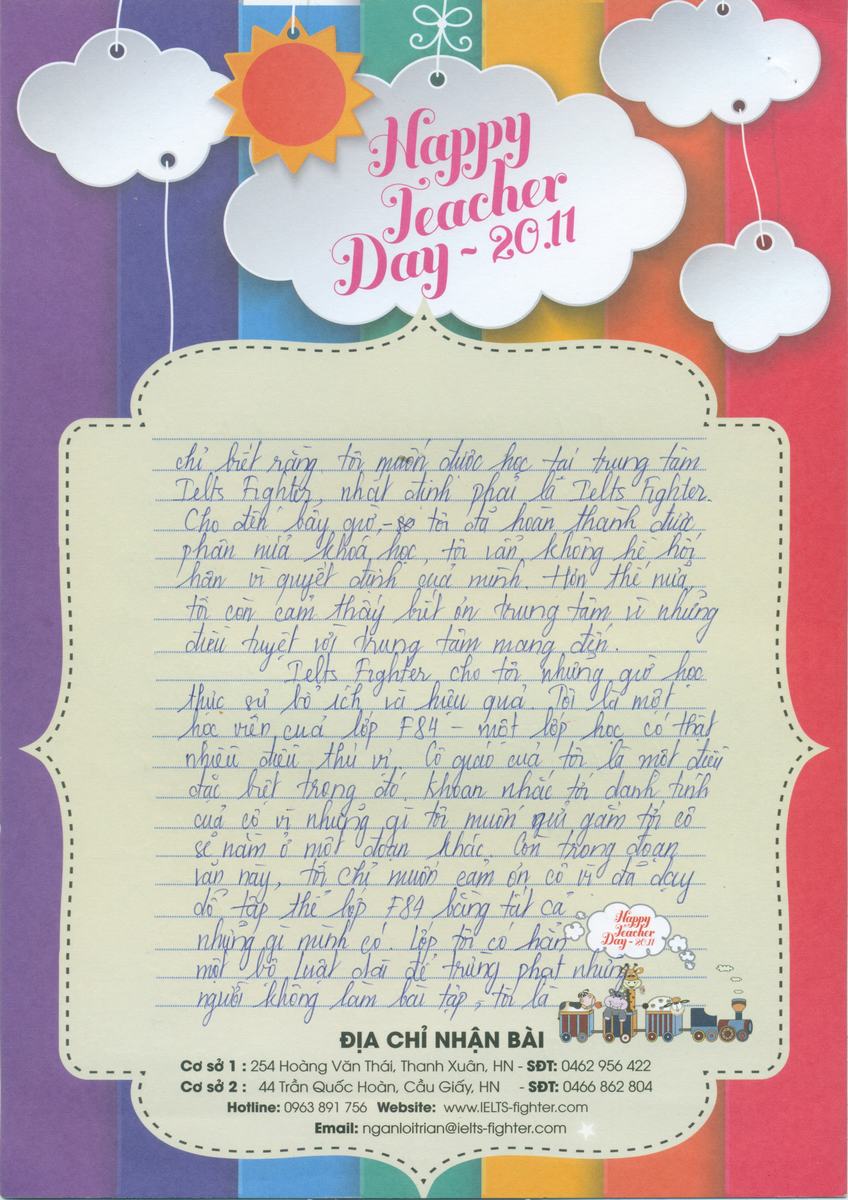 Happy
Teacher
Day - 20.11
chỉ biết rằng, tôi muốn được học tại trung tâm
Ielts Fighter, nhất định phải là Ielts Fighter.
Cho đến bây giờ, tôi đã hoàn thành được
phân nửa khoá học, tôi vẫn không hề hối
hận vì quyết định của mình. Hơn thế nữa,
tôi còn cảm thấy biết ơn trung tâm vì những
điều tuyệt vời trung tâm mang đến.
Ielts Fighter cho tôi những giờ học
thực sự bổ ích và hiệu quả. Tôi là một
học viên của lớp F84 - một lớp học có thật
nhiều điều thú vị. Cô giáo của tôi là một điều
đặc biệt trong đó. Khoan nhắc tới danh tính
của cô vì những gì tôi muốn gửi gắm tới cô
sẽ nằm ở một đoạn khác. Còn trong đoạn
văn này, tôi chỉ muốn cảm ơn cô vì đã dạy
dỗ tập thể lớp F84 bằng tất cả
những gì mình có. Lớp tôi có hẳn
một bộ luật dài để trừng phạt những
người không làm bài tập, tôi là
Happy
Teacher
Day - 20.11
ĐỊA CHỈ NHẬN BÀI
Cơ sở 1 : 254 Hoàng Văn Thái, Thanh Xuân, HN - SĐT: 0462 956 422
Cơ sở 2 : 44 Trần Quốc Hoàn, Cầu Giấy, HN - SĐT: 0466 862 804
Hotline: 0963 891 756 Website: www.IELTS-fighter.com
Email: nganloitrian@ielts-fighter.com